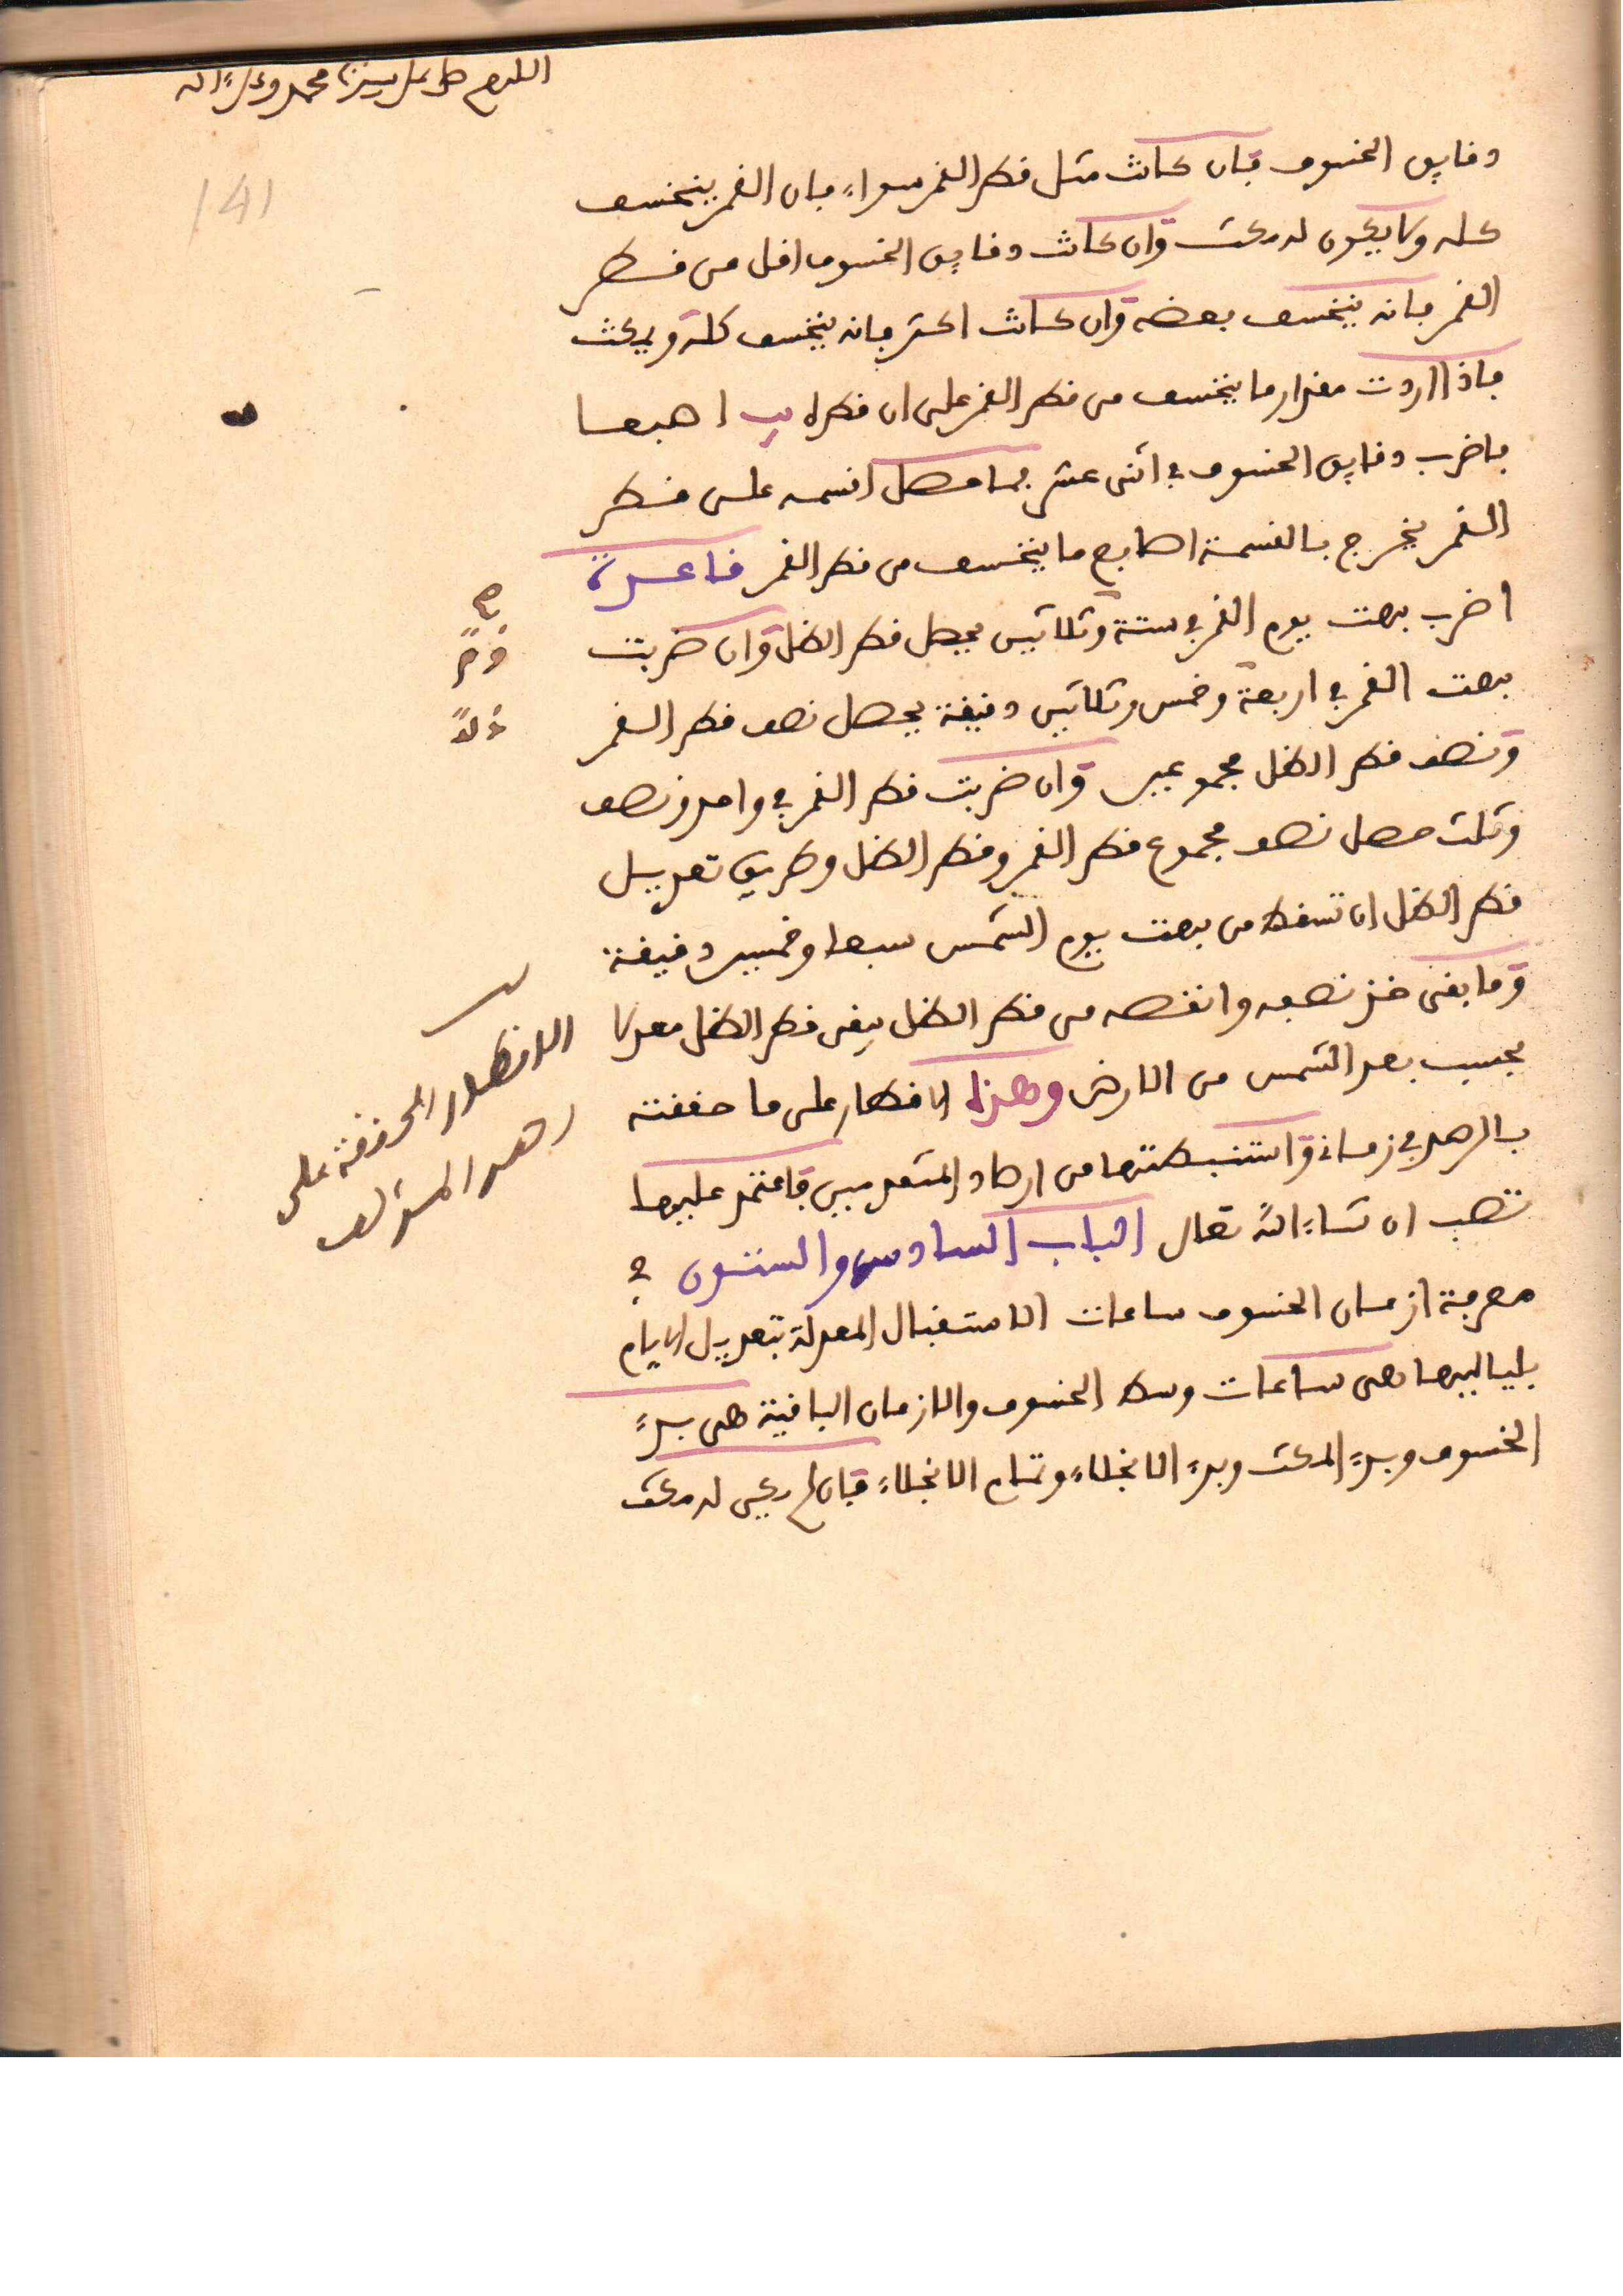 اللهم صل على سيدنا محمد وعلى ءاله
141
دقايق الخسوف فان كانت مثل قطر القمر سواء فان القمر ينخسف
كله ولا يكون له مكث وان كانت دقايق الخسوف اقل من قطر
القمر فانه ينخسف بعضه وان كانت اكثر فانه ينخسف كله ويمكث
فاذا اردت مقدار ما ينخسف من قطر القمر على ان قطره يب اصبعا
فاضرب دقايق الخسوف في اثنى عشر فما حصل اقسمه على قطر
القمر يخرج بالقسمة اصابع ما ينخسف من قطر القمر قاعدة
اضرب بهت يوم القمر في ستة وثلاثين يحصل قطر الظل وان ضربت
بهت القمر في اربعة وخمس وثلاثين دقيقة يحصل نصف قطر القمر
ونصف قطر الظل مجموعين وان ضربت قطر القمر في واحد ونصف
وثلث حصل نصف مجموع قطر القمر وقطر الظل وطريق تعديل
قطر الظل ان تسقط من بهت يوم الشمس سبعا وخمسين دقيقة
وما بقى خذ نصفه وانقصه من قطر الظل يبقى قطر الظل معدلا
بحسب بعد الشمس من الارض وهذا الاقطار على ما حققته
بالرصد في زماننا واستنبطتها من ارصاد المتقدمين فاعتمد عليها
تصب ان شاء الله تعالى الباب السادس والستون في
معرفة ازمان الخسوف ساعات الاستقبال المعدلة بتعديل الايام
بلياليها هى ساعات وسط الخسوف والازمان الباقية هى بدء
الخسوف وبدء المكث وبدء الانجلاء وتمام الانجلاء فان لم يكن له مكث
الاقطار المحققة على
رصد المؤلف